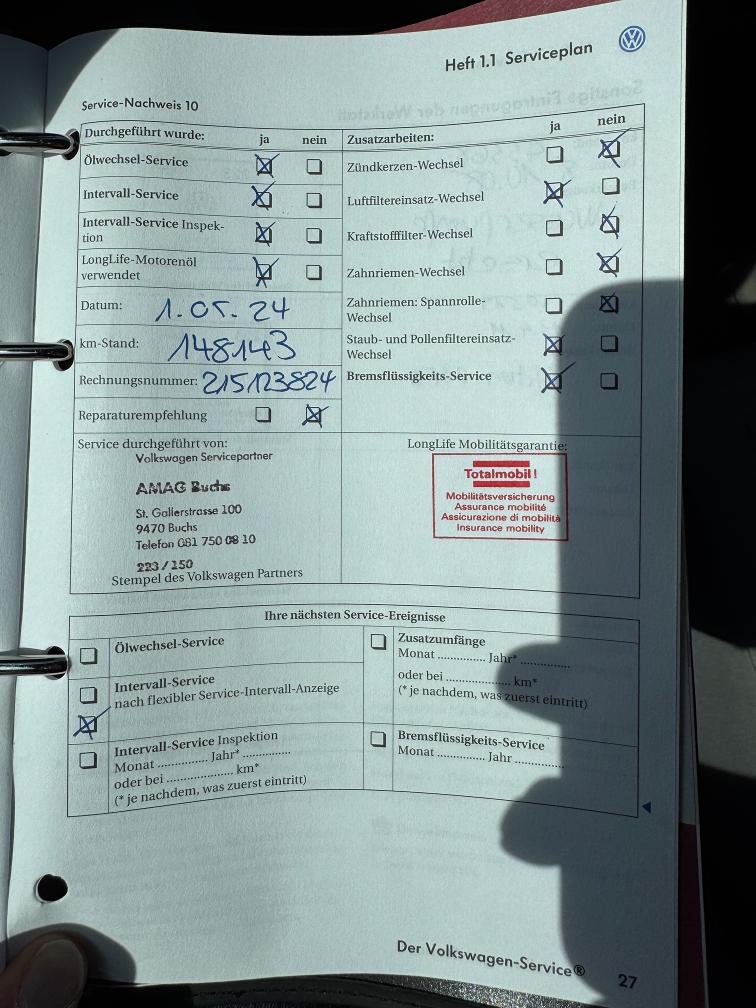 Heft 1.1 Serviceplan
Service-Nachweis 10
Durchgeführt wurde: ja nein
Ölwechsel-Service
Intervall-Service
Intervall-Service Inspek-
tion
LongLife-Motorenöl
verwendet
Datum: 1.05.24
km-Stand: 148143
Rechnungsnummer: 215123824
Reparaturempfehlung
Zusatzarbeiten: ja nein
Zündkerzen-Wechsel
Luftfiltereinsatz-Wechsel
Kraftstofffilter-Wechsel
Zahnriemen-Wechsel
Zahnriemen: Spannrolle-
Wechsel
Staub- und Pollenfiltereinsatz-
Wechsel
Bremsflüssigkeits-Service
Service durchgeführt von:
Volkswagen Servicepartner
AMAG Buchs
St. Gallerstrasse 100
9470 Buchs
Telefon 081 750 08 10
223/150
Stempel des Volkswagen Partners
LongLife Mobilitätsgarantie:
Totalmobil!
Mobilitätsversicherung
Assurance mobilité
Assicurazione di mobilità
Insurance mobility
Ihre nächsten Service-Ereignisse
Ölwechsel-Service
Intervall-Service
nach flexibler Service-Intervall-Anzeige
Intervall-Service Inspektion
Monat ............... Jahr* ...............
oder bei .................... km*
(* je nachdem, was zuerst eintritt)
Zusatzumfänge
Monat ............... Jahr* ...............
oder bei .................... km*
(* je nachdem, was zuerst eintritt)
Bremsflüssigkeits-Service
Monat ............... Jahr ...............
Der Volkswagen-Service® 27